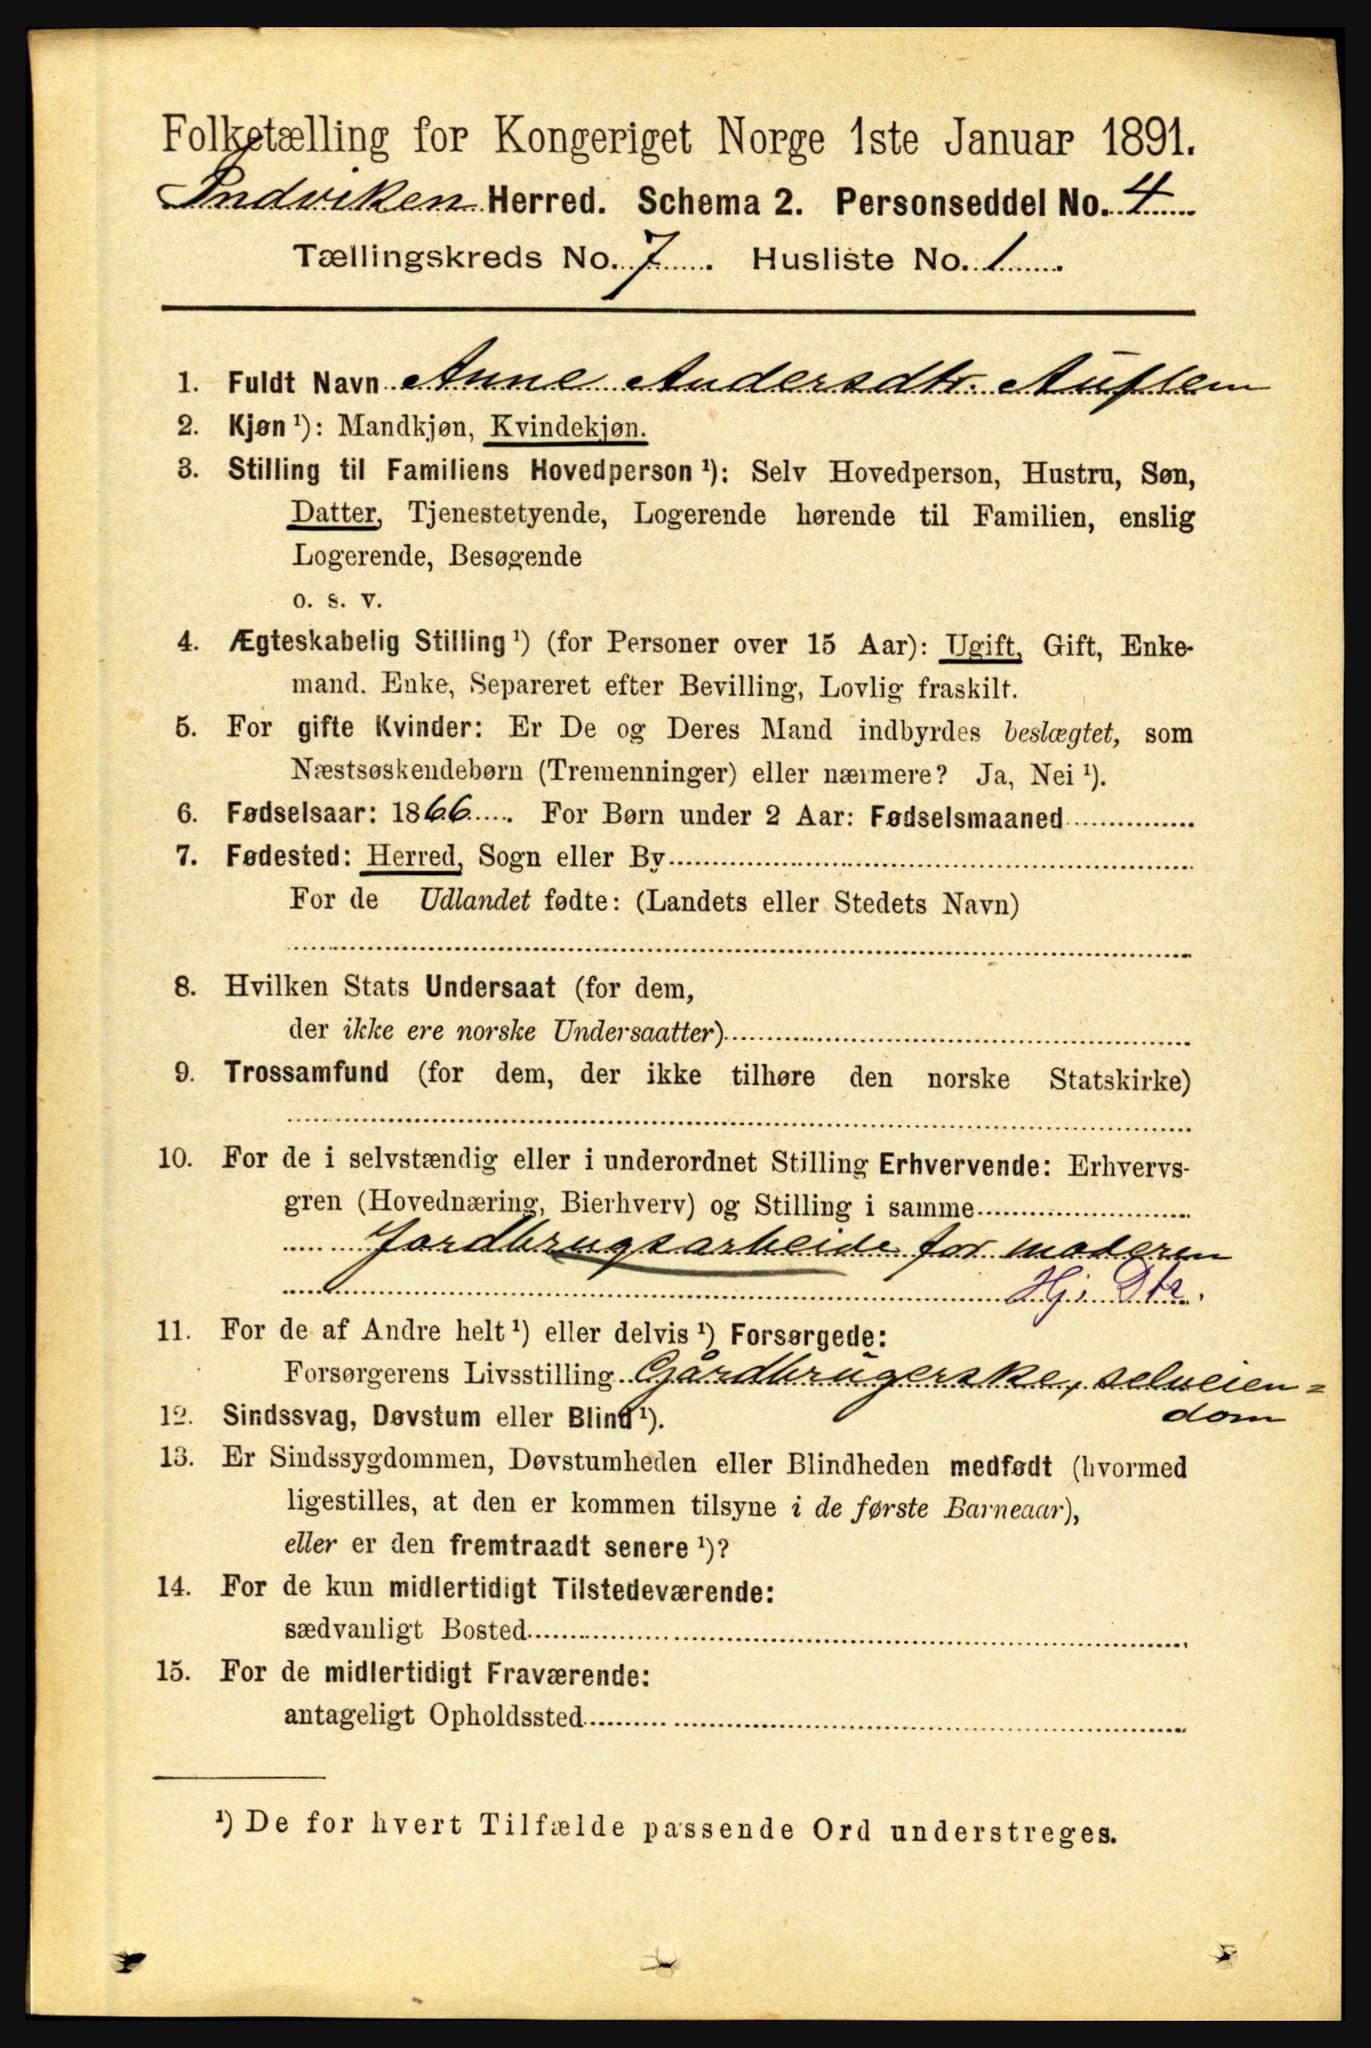 Folketælling for Kongeriget Norge 1ste Januar 1891.
Indviken Herred. Schema 2. Personseddel No. 4
Tællingskreds No. 7. Husliste No. 1.
1. Fuldt Navn Anne Andersdtr. Auflem
2. Kjøn ¹): Mandkjøn, Kvindekjøn.
3. Stilling til Familiens Hovedperson ¹): Selv Hovedperson, Hustru, Søn,
Datter, Tjenestetyende, Logerende hørende til Familien, enslig
Logerende, Besøgende
o. s. v.
4. Ægteskabelig Stilling ¹) (for Personer over 15 Aar): Ugift, Gift, Enke-
mand. Enke, Separeret efter Bevilling, Lovlig fraskilt.
5. For gifte Kvinder: Er De og Deres Mand indbyrdes beslægtet, som
Næstsøskendebørn (Tremenninger) eller nærmere? Ja, Nei ¹).
6. Fødselsaar: 1866. For Børn under 2 Aar: Fødselsmaaned
7. Fødested: Herred, Sogn eller By
For de Udlandet fødte: (Landets eller Stedets Navn)
8. Hvilken Stats Undersaat (for dem,
der ikke ere norske Undersaatter)
9. Trossamfund (for dem, der ikke tilhøre den norske Statskirke)
10. For de i selvstændig eller i underordnet Stilling Erhvervende: Erhvervs-
gren (Hovednæring, Bierhverv) og Stilling i samme
Jordbrugsarbeide for moderen
Hj. Dtr.
11. For de af Andre helt ¹) eller delvis ¹) Forsørgede:
Forsørgerens Livsstilling Gårdbrugerske, selveien=
dom
12. Sindssvag, Døvstum eller Blind ¹).
13. Er Sindssygdommen, Døvstumheden eller Blindheden medfødt (hvormed
ligestilles, at den er kommen tilsyne i de første Barneaar),
eller er den fremtraadt senere ¹)?
14. For de kun midlertidigt Tilstedeværende:
sædvanligt Bosted
15. For de midlertidigt Fraværende:
antageligt Opholdssted
¹) De for hvert Tilfælde passende Ord understreges.